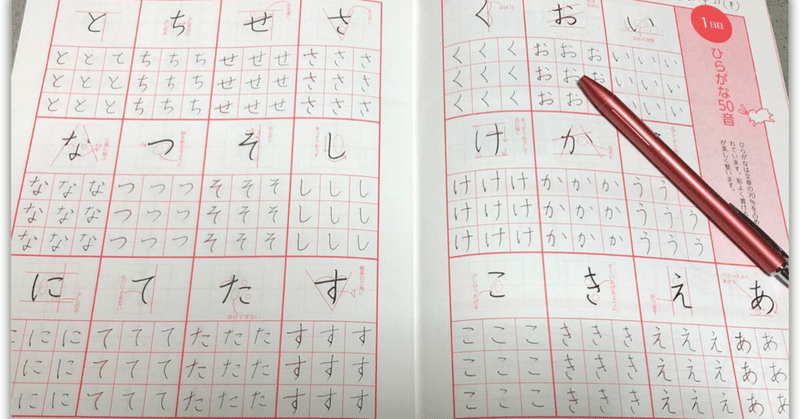 1日目
ひらがな50音
ひらがなは文章の70%を占め
れています。
が美しく整います。
あ
ああ
ああ
ああ
い
いいい
いいい
いいい
ううう
ううう
ううう
え
えええ
えええ
えええ
お
おおお
おおお
おお
か
かかか
かかか
かかか
き
ききき
ききき
ききき
く
くくく
くくく
くくく
け
けけけ
けけけ
けけけ
こ
こここ
こここ
こここ
さ
さささ
さささ
さささ
し
ししし
ししし
ししし
す
すすす
すすす
すすす
せ
せせせ
せせせ
せせせ
そ
そそそ
そそそ
そそそ
た
たたた
たたた
たたた
ち
ちちち
ちちち
ちちち
つ
つつつ
つつつ
つつつ
て
ててて
ててて
ててて
と
ととと
ととと
ととと
な
ななな
ななな
ななな
に
ににに
ににに
ににに